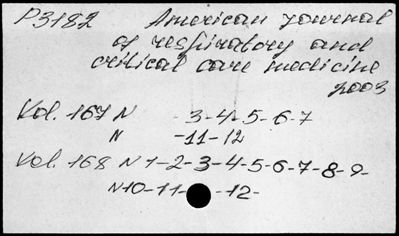 P3182 American journal
of respiratory and
critical care medicine
2003
Vol. 167 N 3-4-5-6-7
N -11-12
Vol. 168 N 1-2-3-4-5-6-7-8-9-
N10-11- -12-